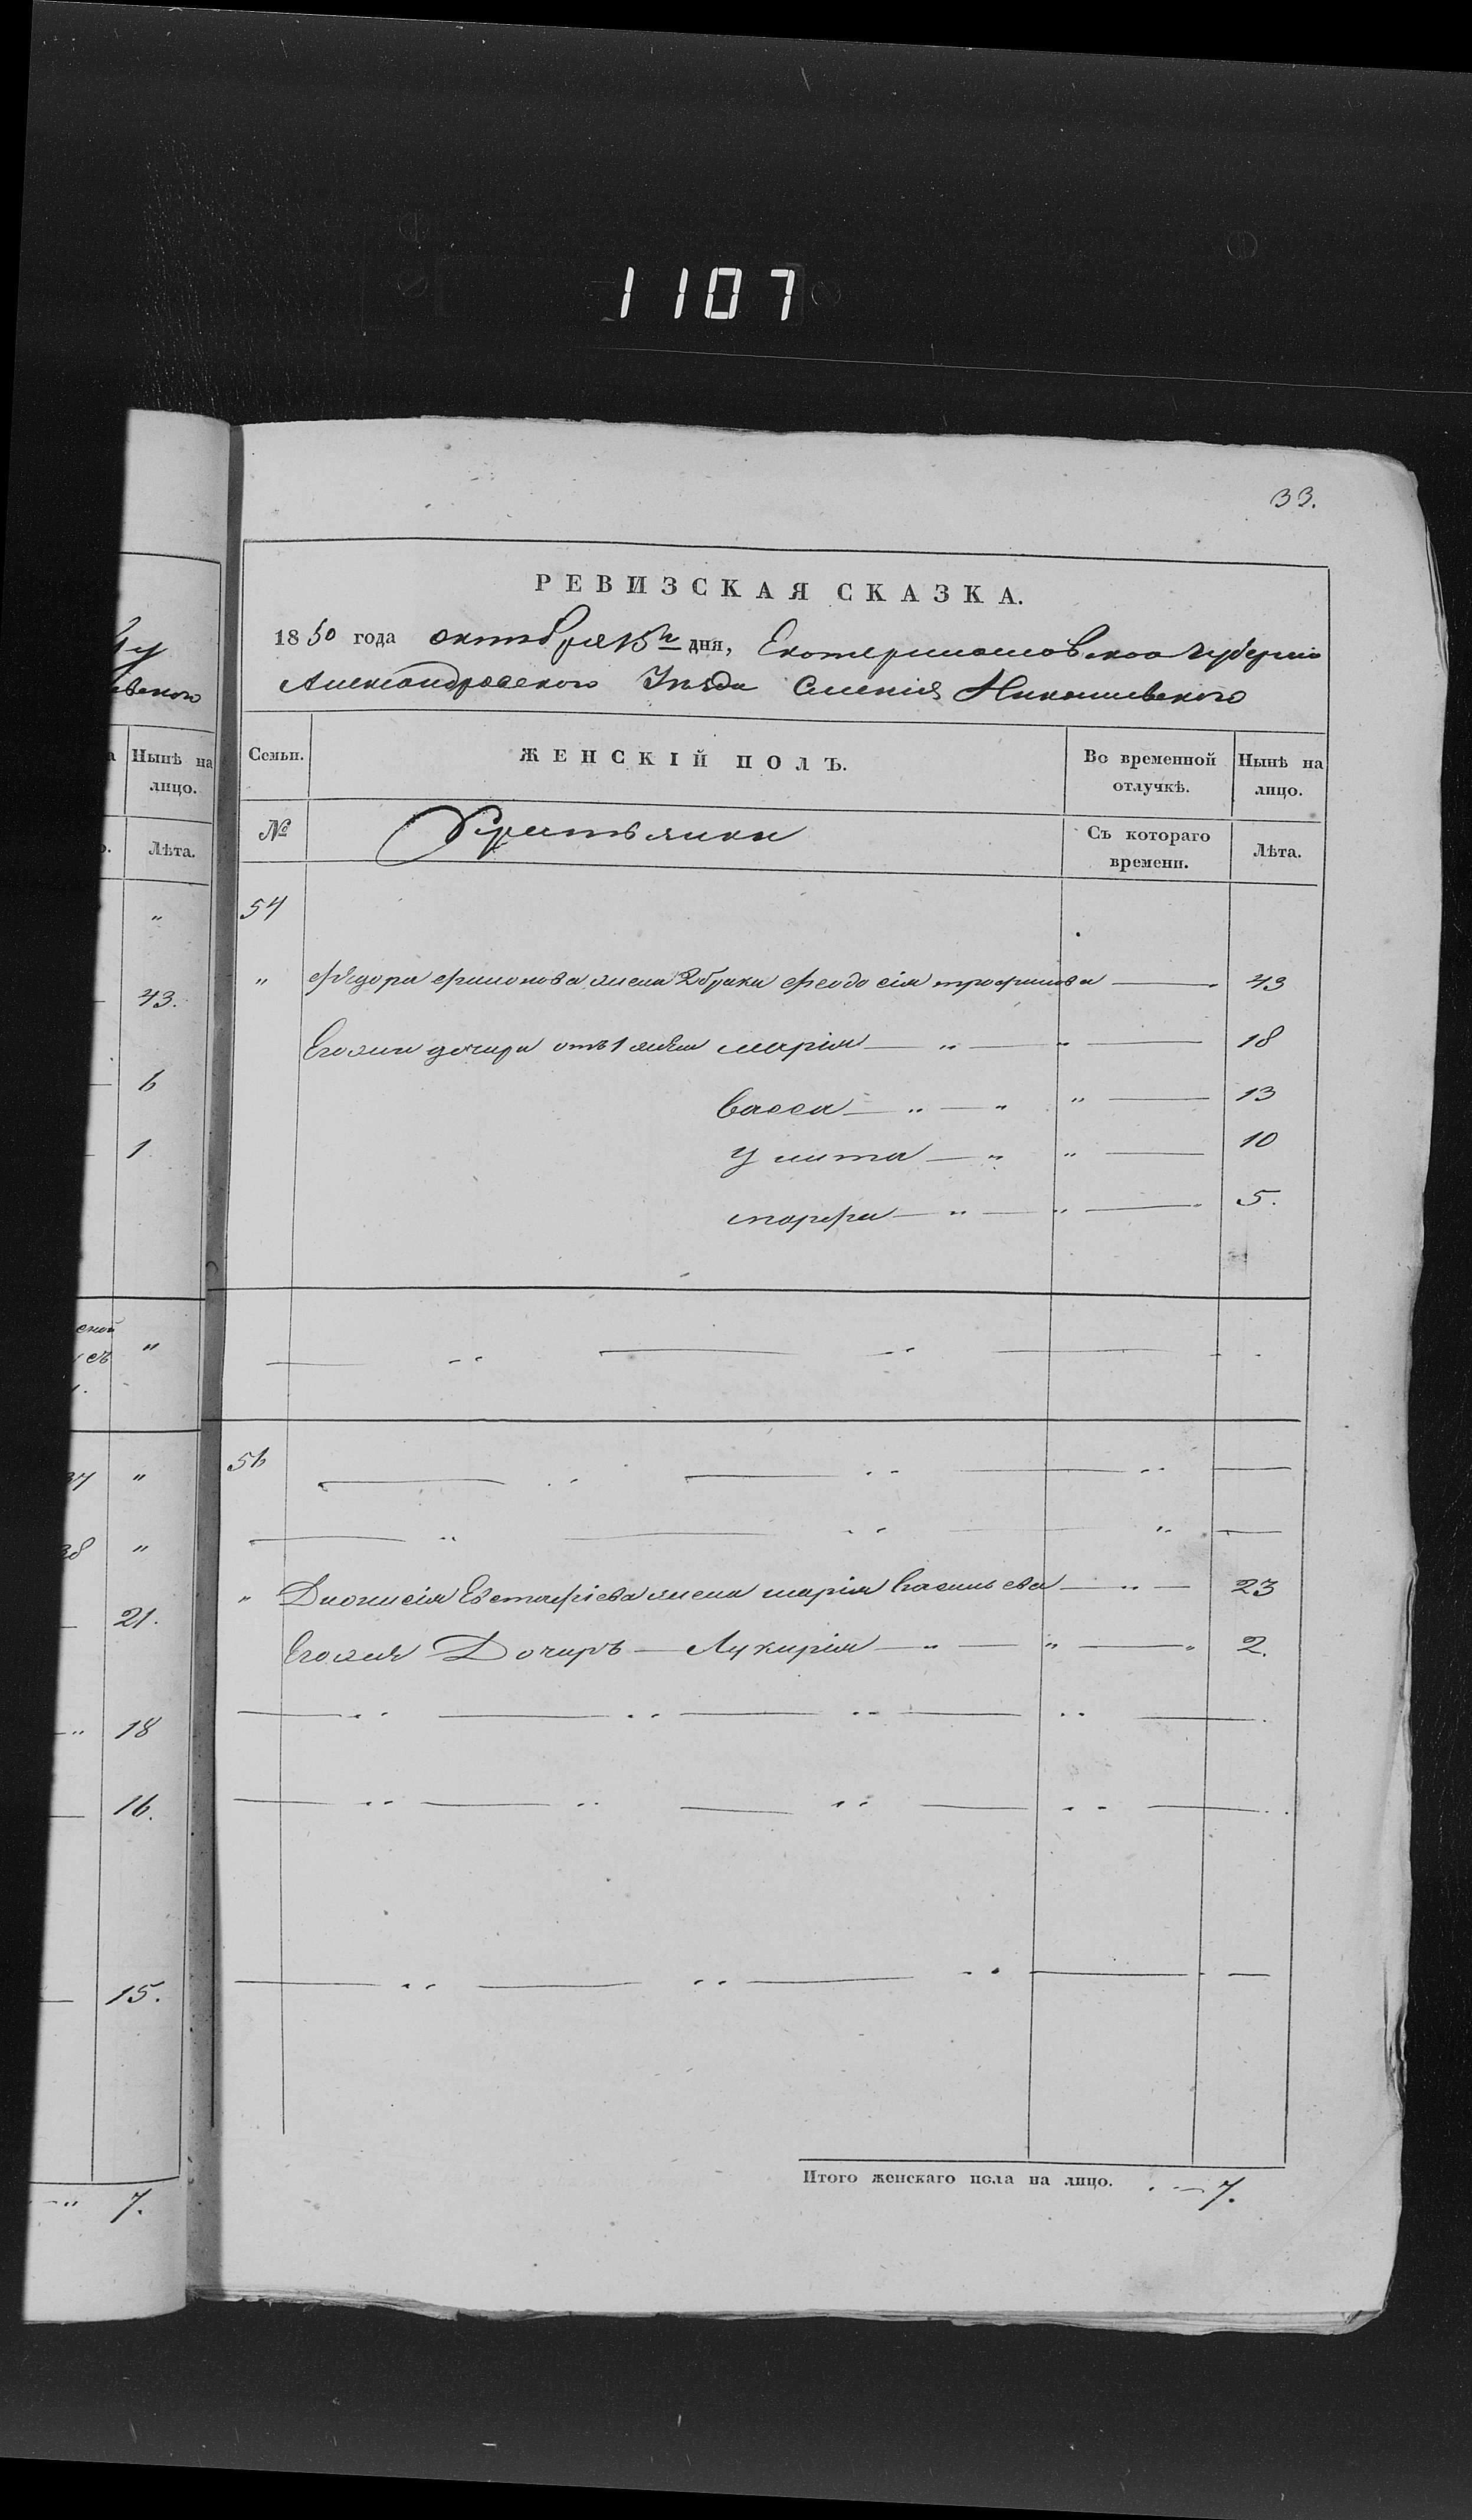 1107
33.
РЕВИЗСКАЯ СКАЗКА.
1850 года октября 15го дня, Екатеринославской губернии
Александровского Уезда Имения Николаевского
Семьи. ЖЕНСКІЙ ПОЛЪ. Во временной отлучкѣ. Нынѣ на лицо.
№ Крестьянки Съ котораго времени. Лѣта.
54
" Федора Филипова жена 2 брака Феодосія трофимова — 43
Егоже дочери отъ 1 жены марія — " — " — 18
васса — " — " " — 13
улита — " " — 10
марфа — " — " — 5.
56
" Дионисія Евстафіева жена марія Васильева — " — 23
Егоже Дочерь — Лукирія — " — " — " 2.
Итого женскаго пола на лицо. . — 7.
ского
а Нынѣ на лицо.
Лѣта.
"
43.
6
1
ской "
съ
37 "
38 "
21.
" 18
16.
15.
" 7.